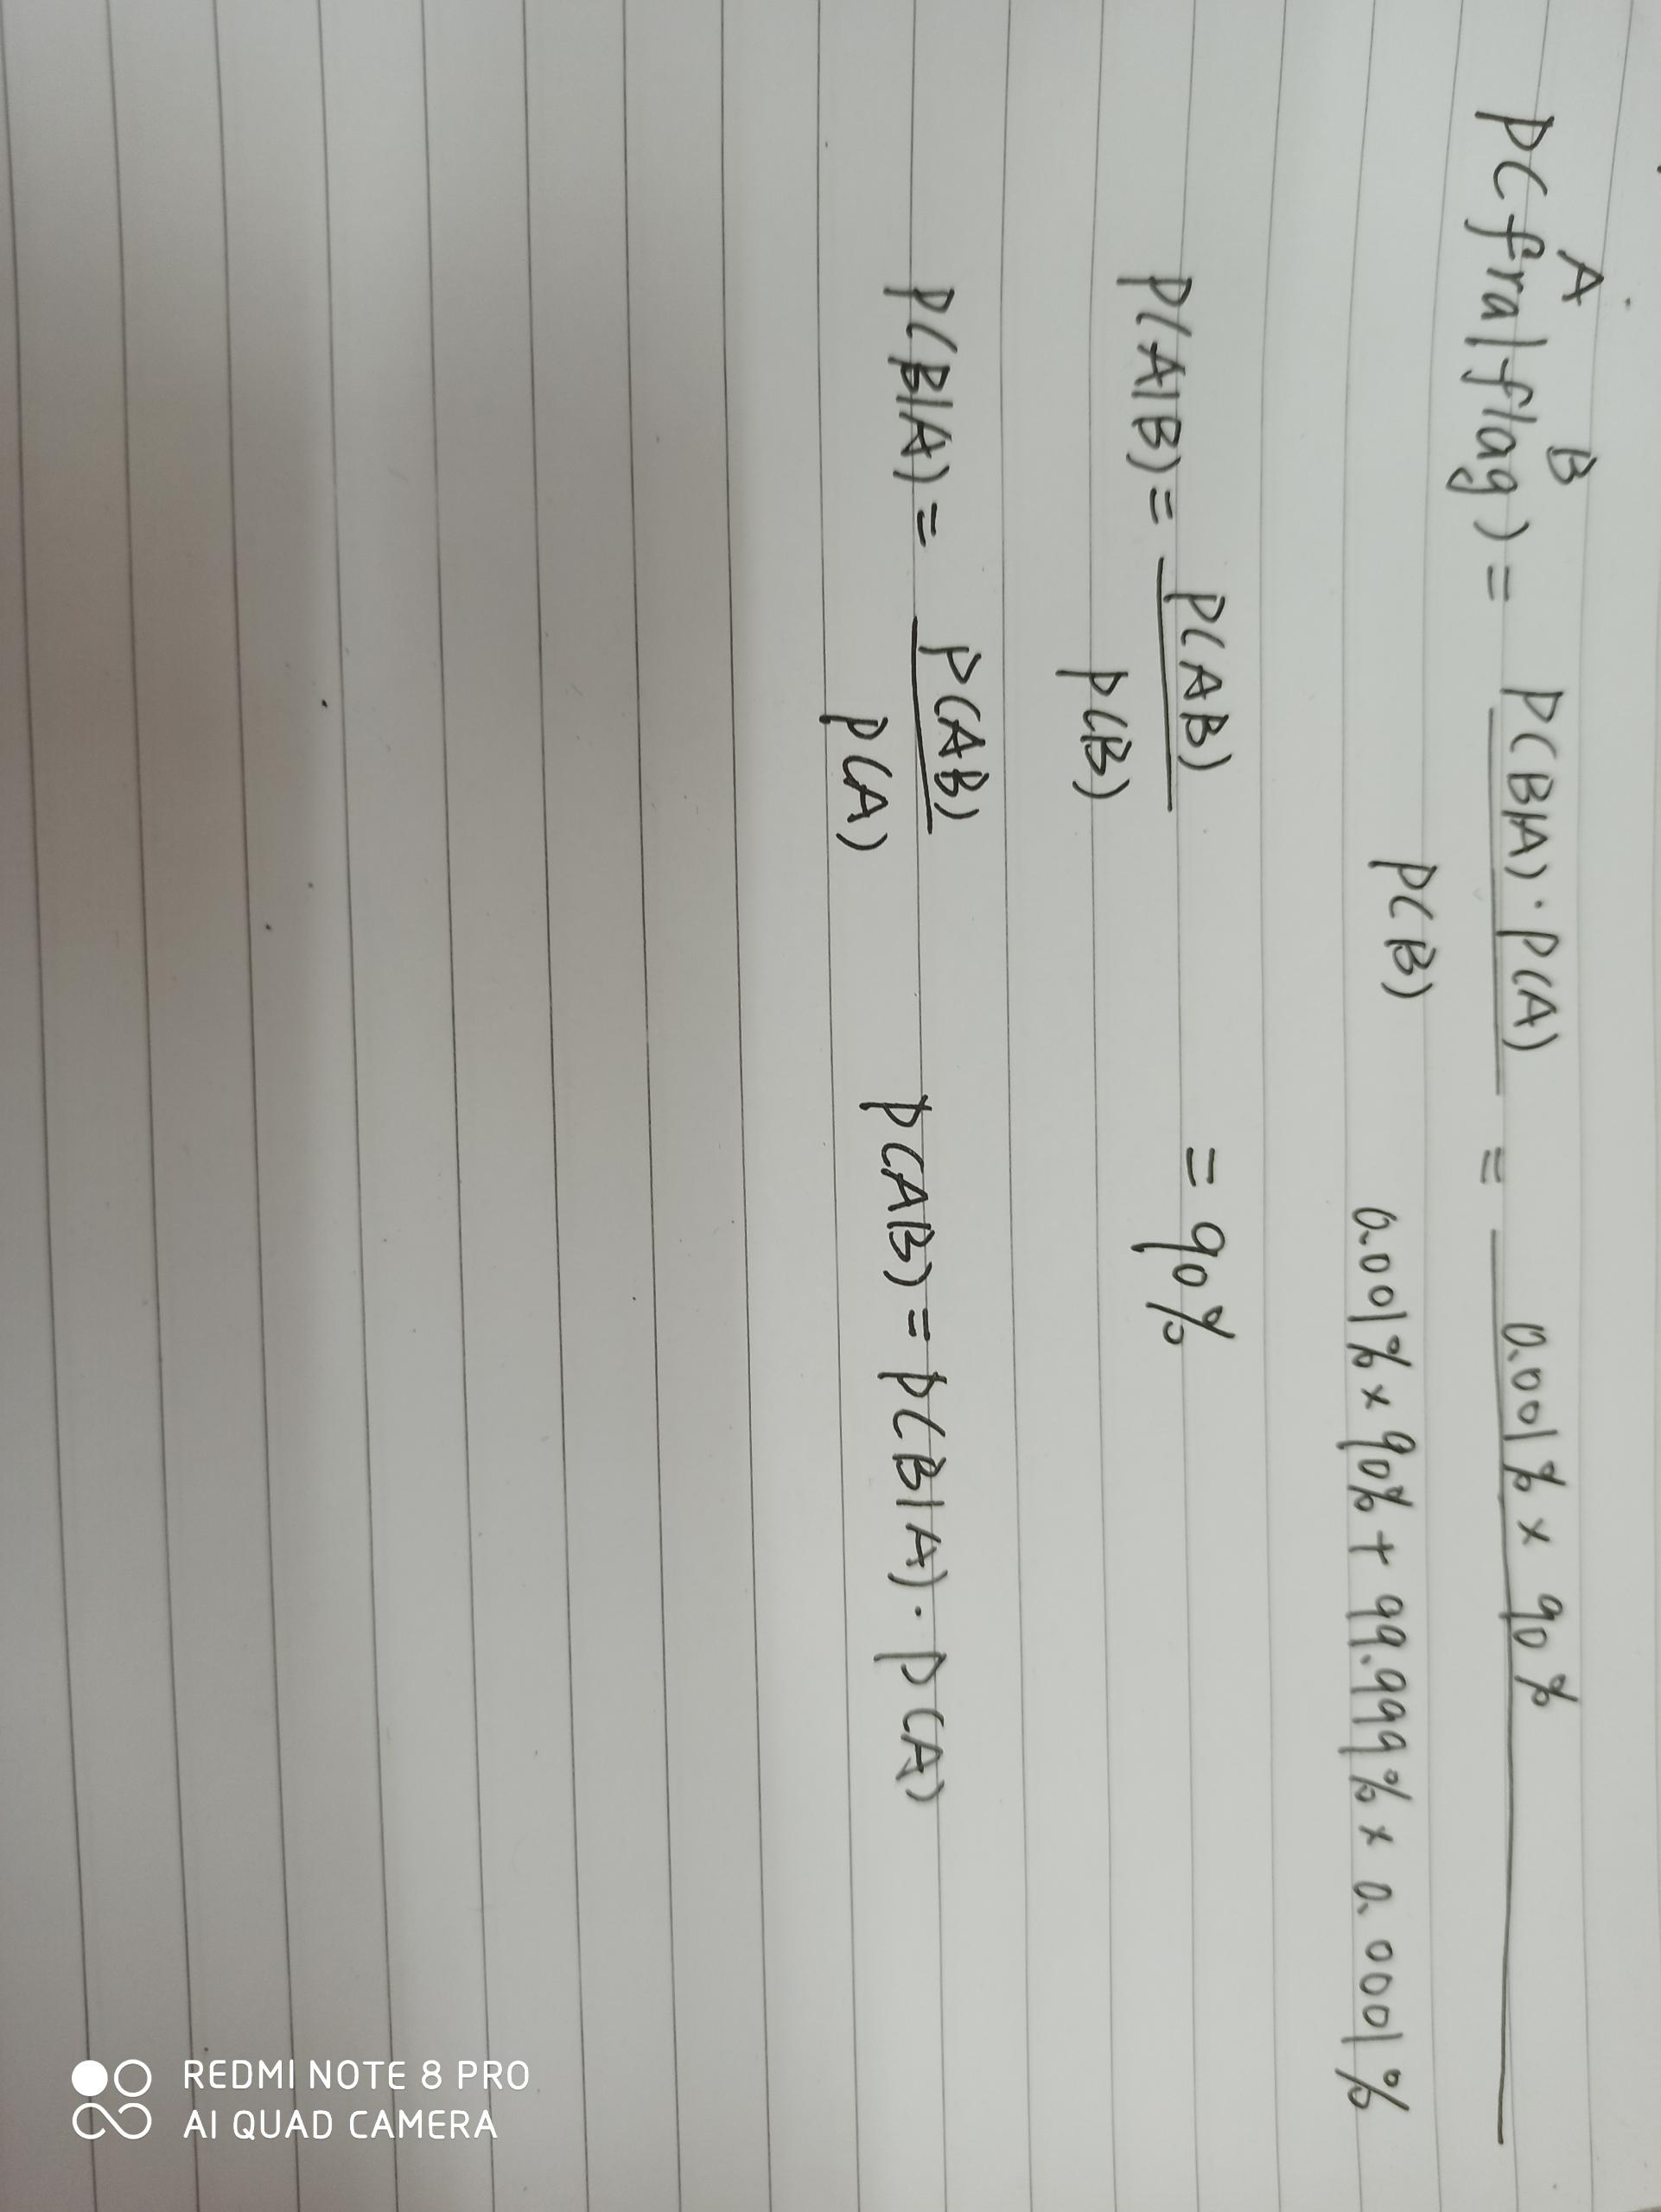 A B
P(fra|flag) = P(B|A)·P(A) / P(B) = 0.001% × 90% / 0.001% × 90% + 99.999% × 0.0001%
P(A|B) = P(AB) / P(B) = 90%
P(B|A) = P(AB) / P(A) P(AB) = P(B|A)·P(A)
REDMI NOTE 8 PRO
AI QUAD CAMERA